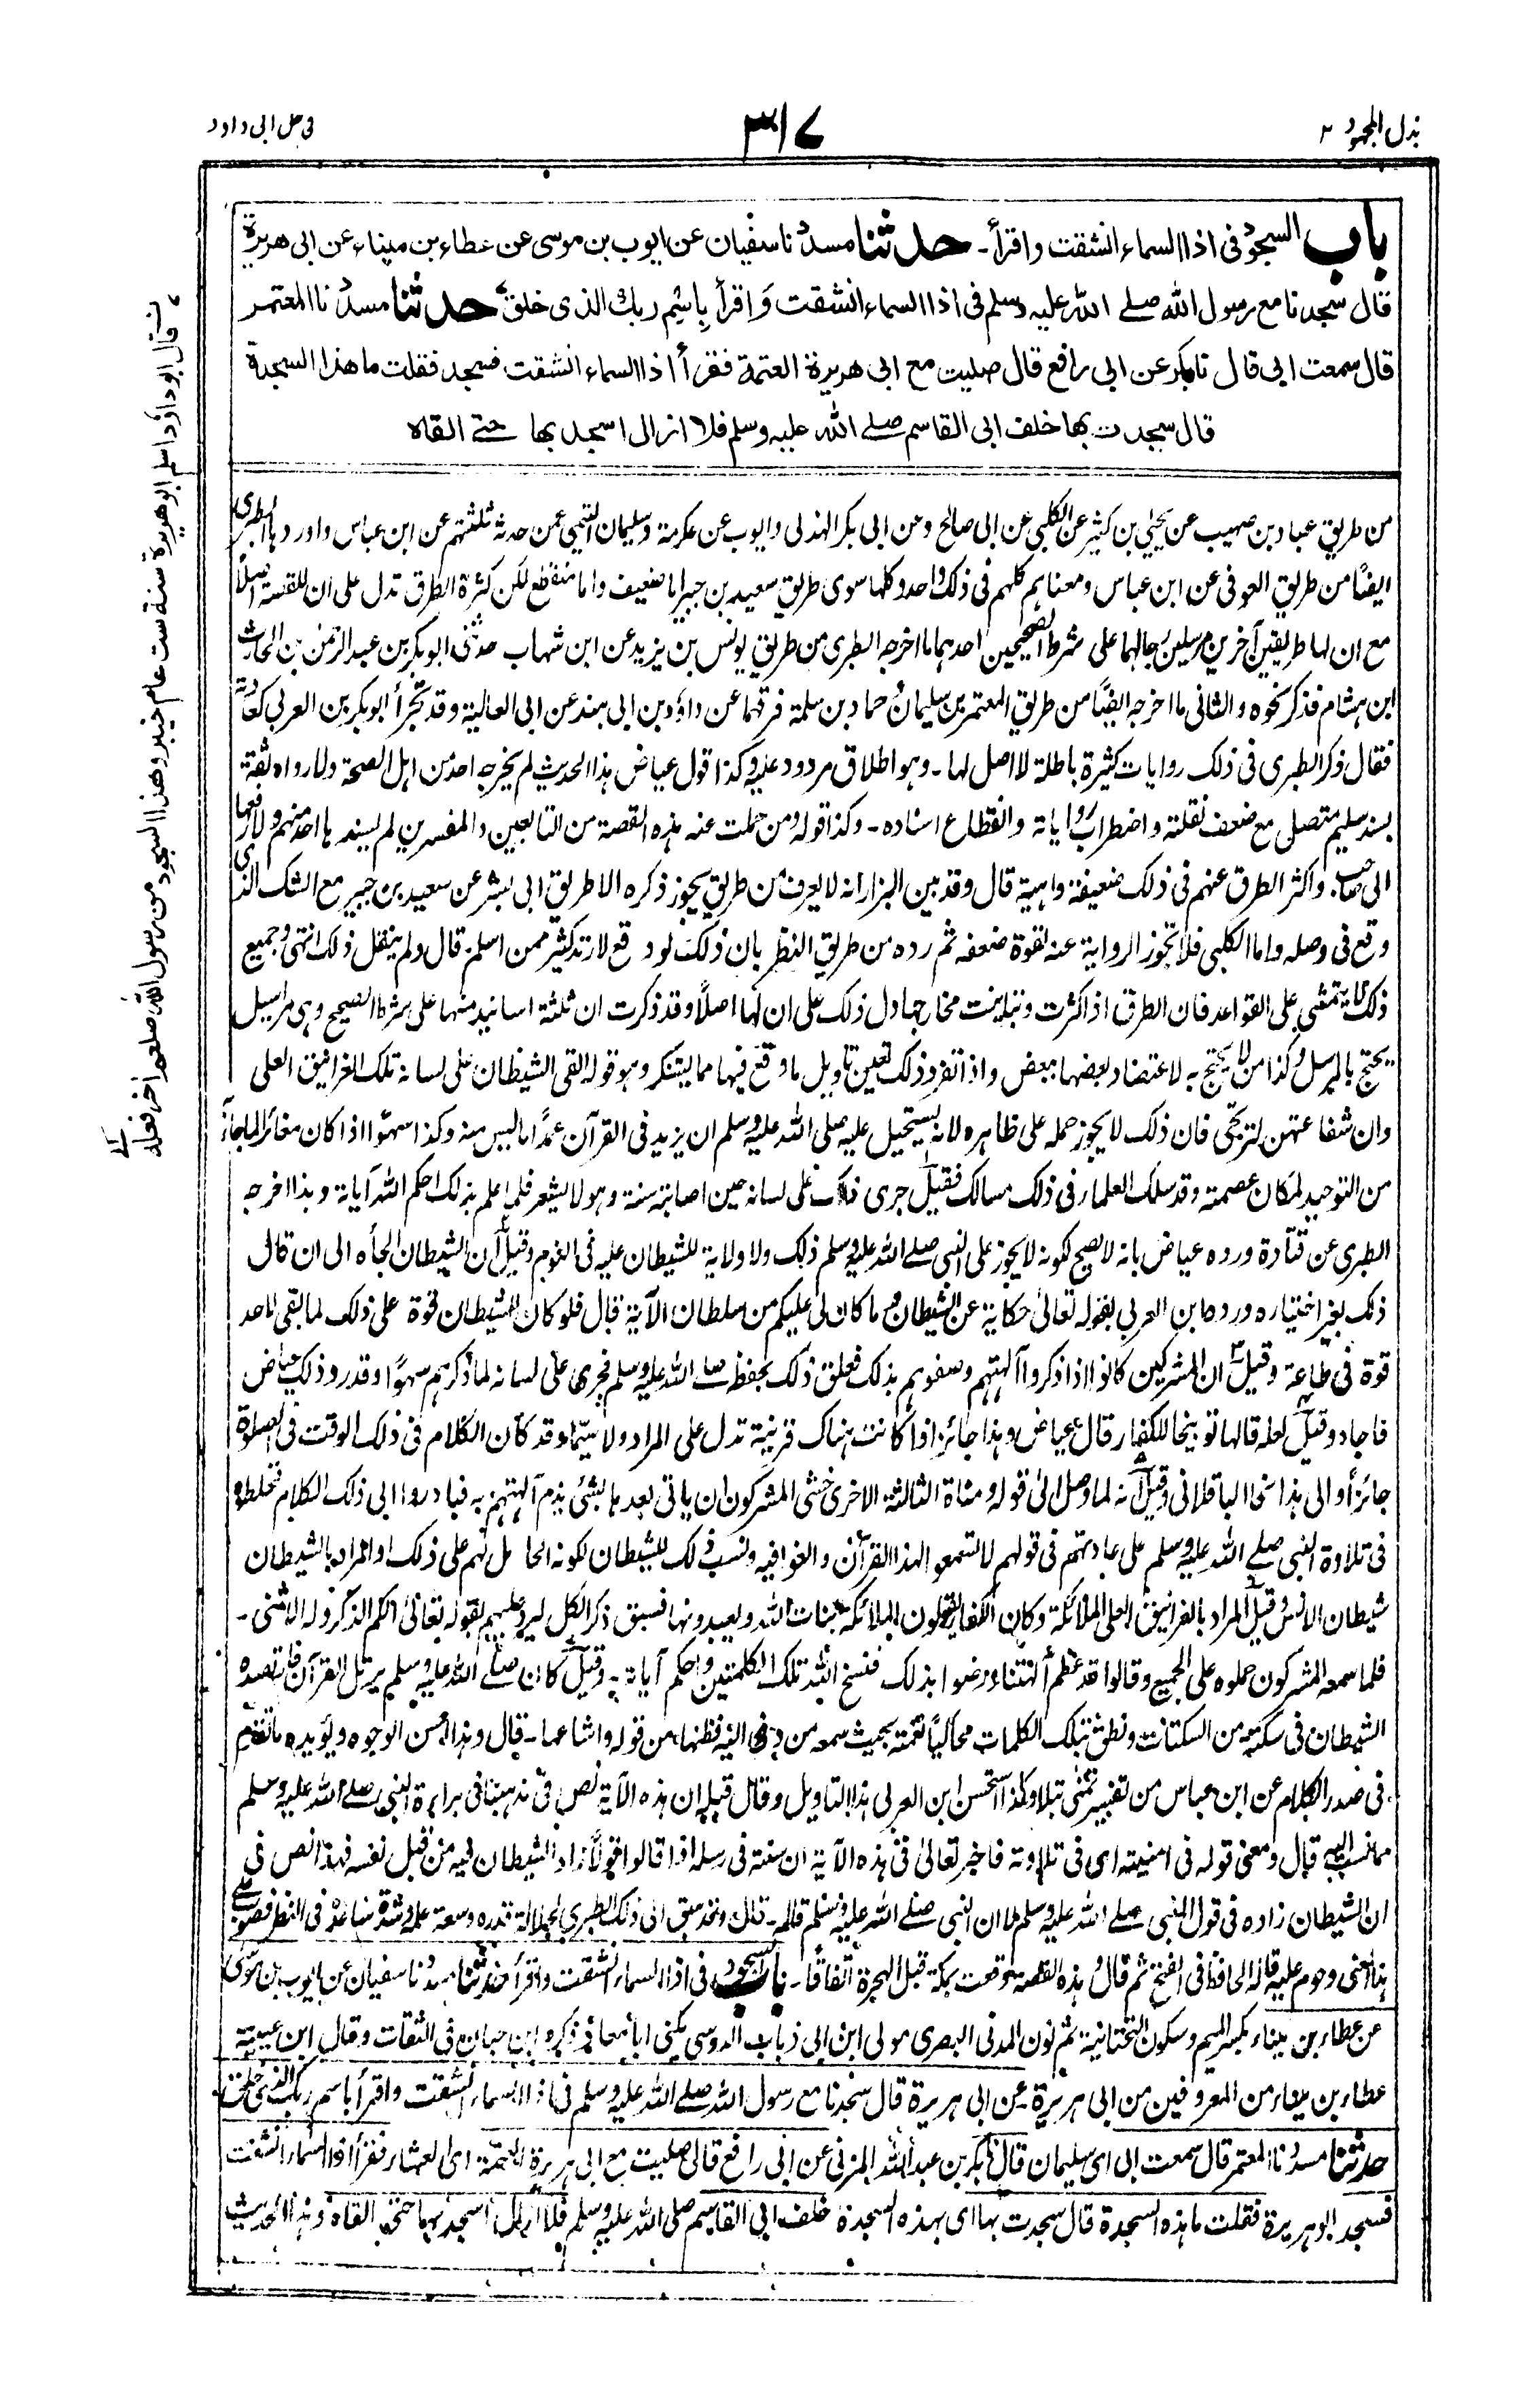 بذل المجهود ٢
٣١٧
في حل ابي داود
باب السجود في اذا السماء انشقت واقرأ - حدثنا مسدد نا سفيان عن ايوب بن موسى عن عطاء بن ميناء عن ابي هريرة
قال سجدنا مع رسول الله صلے الله عليه وسلم في اذا السماء انشقت وَاقرأ بِاسْمِ ربك الذى خلق حدثنا مسدد نا المعتمر
قال سمعت ابي قال نا بكر عن ابي رافع قال صليت مع ابي هريرة العتمة فقرأ اذا السماء انشقت فسجد فقلت ما هذا السجدة
قال سجدت بها خلف ابي القاسم صلے الله عليه وسلم فلا ازال اسجد بها حتے القاه
من طريق عباد بن صهيب عن يحيى بن كثير عن الكلبي عن ابى صالح وعن ابى بكر الهذلى وايوب عن عكرمة وسليمان التيمي عمن حدثه ثلثتهم عن ابن عباس واوردها الطبرى
ايضًا من طريق العوفى عن ابن عباس ومعناهم كلهم فى ذلك واحد وكلها سوى طريق سعيد بن جبير اما ضعيف واما منقطع لكن كثرة الطرق تدل على ان للقصة اصلًا
مع ان لها طريقين آخرين مرسلين رجالهما على شرط الصحيحين احدهما ما اخرجه الطبرى من طريق يونس بن يزيد عن ابن شهاب حدثنى ابو بكر بن عبد الرحمن بن الحارث
ابن هشام فذكر نحوه والثانى ما اخرجه ايضًا من طريق المعتمر بن سليمان وحماد بن سلمة فرقهما عن داؤد بن ابى هند عن ابى العالية وقد تجرأ ابو بكر بن العربى كعادته
فقال ذكر الطبرى فى ذلك روايات كثيرة باطلة لا اصل لها - وهو اطلاق مردود عليه وكذا قول عياض هذا الحديث لم يخرجه احد من اهل الصحة ولا رواه ثقة
بسند سليم متصل مع ضعف نقلته واضطراب رواياته وانقطاع اسناده - وكذا قوله ومن حملت عنه هذه القصة من التابعين والمفسرين لم يسندها احد منهم ولا رفعها
الى صاحب واكثر الطرق عنهم فى ذلك ضعيفة واهية قال وقد بين البزار انه لا يعرف من طريق يجوز ذكره الا طريق ابى بشر عن سعيد بن جبير مع الشك الذى
وقع فى وصله واما الكلبى فلا تجوز الرواية عنه لقوة ضعفه ثم رده من طريق النظر بان ذلك لو وقع لارتد كثير ممن اسلم قال ولم ينقل ذلك انتهى وجميع
ذلك لا يتمشى على القواعد فان الطرق اذا كثرت وتباينت مخارجها دل ذلك على ان لها اصلًا وقد ذكرت ان ثلثة اسانيد منها على شرط الصحيح وهى مراسيل
يحتج بالمرسل وكذا من لا يحتج به لاعتضاد بعضها ببعض واذا تقرر ذلك تعين تاويل ما وقع فيها مما يستنكر وهو قوله القى الشيطان على لسانه تلك الغرانيق العلى
وان شفاعتهن لترتجى فان ذلك لا يجوز حمله على ظاهره لانه يستحيل عليه صلى الله عليه وسلم ان يزيد فى القرآن عمدًا ما ليس منه وكذا سهوًا اذا كان مغائر الما جاء
من التوحيد لمكان عصمته وقد سلك العلماء فى ذلك مسالك فقيل جرى ذلك على لسانه حين اصابته سنة وهو لا يشعر فلما علم بذلك احكم الله آياته وهذا اخرجه
الطبرى عن قتادة ورده عياض بانه لا يصح لكونه لا يجوز على النبى صلے الله عليه وسلم ذلك ولا ولاية للشيطان عليه فى النوم وقيل ان الشيطان الجأه الى ان قال
ذلك بغير اختياره ورده ابن العربى بقوله تعالى حكاية عن الشيطان وما كان لى عليكم من سلطان الآية قال فلو كان للشيطان قوة على ذلك لما بقى لاحد
قوة فى طاعة وقيل ان المشركين كانوا اذا ذكروا آلهتهم وصفوهم بذلك فعلق ذلك بحفظه صلے الله عليه وسلم فجرى على لسانه لما ذكرهم سهوًا وقد رد ذلك عياض
فاجاد وقيل لعله قالها توبيخا للكفار قال عياض وهذا جائز اذا كانت هناك قرينة تدل على المراد ولا سيما وقد كان الكلام فى ذلك الوقت فى الصلوة
جائزًا والى هذا نحا الباقلانى وقيل انه لما وصل الى قوله ومناة الثالثة الاخرى خشى المشركون ان ياتى بعدها بشئ يذم آلهتهم به فبادروا الى ذلك الكلام فخلطوه
فى تلاوة النبى صلے الله عليه وسلم على عادتهم فى قولهم لا تسمعوا لهذا القرآن والغوا فيه ونسب ذلك للشيطان لكونه الحامل لهم على ذلك او المراد بالشيطان
شيطان الانس وقيل المراد بالغرانيق العلى الملائكة وكان الكفار يقولون الملائكة بنات الله ويعبدونها فسبق ذكر الكل ليرد عليهم بقوله تعالى الكم الذكر وله الانثى -
فلما سمعه المشركون حملوه على الجميع وقالوا قد عظم آلهتنا ورضوا بذلك فنسخ الله تلك الكلمتين واحكم آياته - وقيل كان صلے الله عليه وسلم يرتل القرآن فارتصده
الشيطان فى سكتة من السكتات ونطق بتلك الكلمات محاكيًا نغمته بحيث سمعه من دنى اليه فظنها من قوله واشاعها - قال وهذا احسن الوجوه ويؤيده ما تقدم
فى صدر الكلام عن ابن عباس من تفسير تمنى بتلا وكذا استحسن ابن العربى هذا التاويل وقال قبله ان هذه الآية نص فى مذهبنا فى براءة النبى صلے الله عليه وسلم
مما نسب اليه قال ومعنى قوله فى امنيته اى فى تلاوته فاخبر تعالى فى هذه الآية ان سنته فى رسله اذا قالوا قولًا زاد الشيطان فيه من قبل نفسه فهذا نص فى
ان الشيطان زاده فى قول النبى صلے الله عليه وسلم لا ان النبى صلے الله عليه وسلم قاله - قال وقد سبق الى ذلك الطبرى لجلالة قدره وسعة علمه وشدة ساعده فى النظر فصوب على
هذا المعنى وحوم عليه قاله الحافظ فى الفتح ثم قال هذه القصة وقعت بمكة قبل الهجرة اتفاقًا - باب السجود فى اذا السماء انشقت واقرأ حدثنا مسدد نا سفيان عن ايوب بن موسى
عن عطاء بن ميناء بكسر الميم وسكون التحتانية ثم نون المدنى البصرى مولى ابن ابى ذباب الدوسى يكنى ابا معاذ ذكره ابن حبان فى الثقات وقال ابن عيينة
عطاء بن ميناء من المعروفين من ابى هريرة عن ابى هريرة قال سجدنا مع رسول الله صلے الله عليه وسلم فى اذا السماء انشقت واقرأ باسم ربك الذى خلق
حدثنا مسدد نا المعتمر قال سمعت ابى اى سليمان قال نا بكر بن عبد الله المزنى عن ابى رافع قال صليت مع ابى هريرة العتمة اى العشاء فقرأ اذا السماء انشقت
فسجد ابو هريرة فقلت ما هذه السجدة قال سجدت بها اى بهذه السجدة خلف ابى القاسم صلى الله عليه وسلم فلا ازال اسجد بها حتى القاه وهذا الحديث
قال ابو داؤد اسلم ابو هريرة سنة ست عام خيبر وهذا السجود من رسول الله صلعم اخر فعله